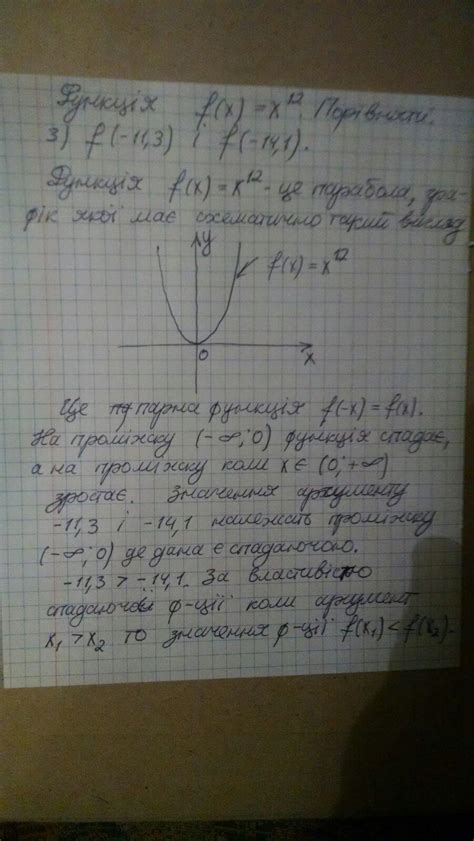 Функція f(x) = x¹². Порівняти.
3) f(-11,3) і f(-14,1).
Функція f(x) = x¹² - це парабола, гра-
фік якої має схематично такий вигляд
y
f(x) = x¹²
0
x
Це парна функція f(-x) = f(x).
На проміжку (-∞; 0) функція спадає,
а на проміжку коли x ∈ (0; +∞)
зростає. Значення аргументу
-11,3 і -14,1 належать проміжку
(-∞; 0) де дана є спадаючою.
-11,3 > -14,1. За властивістю
спадаючої ф-ції коли аргумент
x₁ > x₂ то значення ф-ції f(x₁) < f(x₂)-